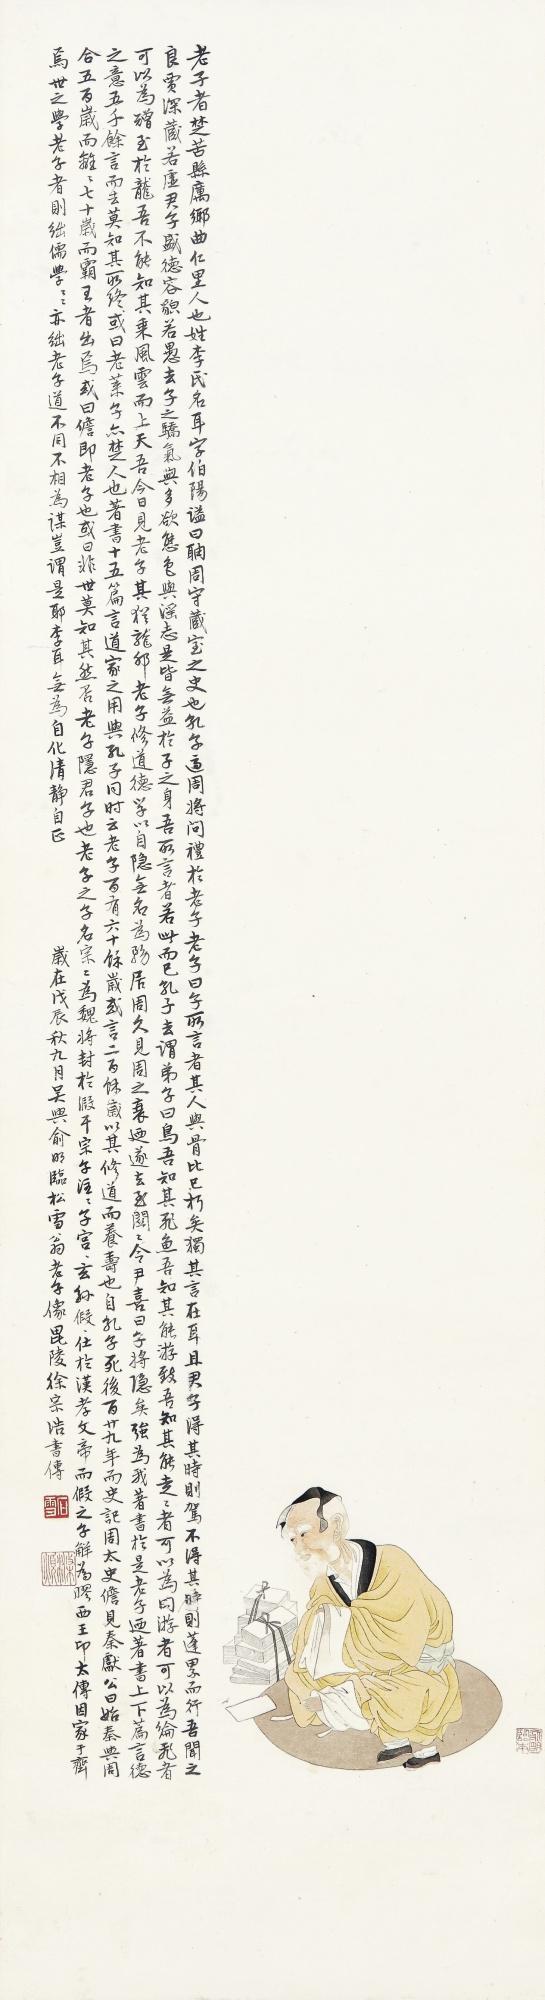 老子者楚苦縣厲鄉曲仁里人也姓李氏名耳字伯陽謚曰聃周守藏室之史也孔子適周將問禮於老子老子曰子所言者其人與骨皆已朽矣獨其言在耳且君子得其時則駕不得其時則蓬累而行吾聞之
良賈深藏若虛君子盛德容貌若愚去子之驕氣與多欲態色與淫志是皆無益於子之身吾所言者若此而已孔子去謂弟子曰鳥吾知其飛魚吾知其能游獸吾知其能走走者可以為罔游者可以為綸飛者
可以為矰至於龍吾不能知其乘風雲而上天吾今日見老子其猶龍邪老子修道德學以自隱無名為務居周久見周之衰迺遂去至關關令尹喜曰子將隱矣強為我著書於是老子迺著書上下篇言德
之意五千餘言而去莫知其所終或曰老萊子亦楚人也著書十五篇言道家之用與孔子同時云老子百有六十餘歲或言二百餘歲以其修道而養壽也自孔子死後百廿九年而史記周太史儋見秦獻公曰始秦與周
合五百歲而離離七十歲而霸王者出焉或曰儋即老子也或曰非世莫知其然否老子隱君子也老子之子名宗宗為魏將封於段干宗子注注子宮宮玄孫假假仕於漢孝文帝而假之子解為膠西王卬太傅因家于齊
焉世之學老子者則絀儒學儒學亦絀老子道不同不相為謀豈謂是耶李耳無為自化清靜自正
歲在戊辰秋九月吳興俞明臨松雪翁老子像毘陵徐宗浩書傳
石雪